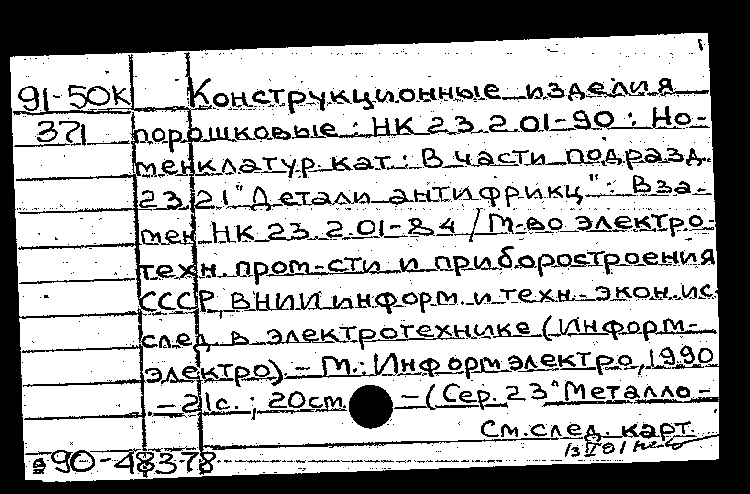 91-50К Конструкционные изделия
371 порошковые : НК 23.2.01-90 : Но-
менклатур. кат. : В части подразд.
23.21 "Детали антифрикц" : Вза-
мен НК 23.2.01-84 / М-во электро-
техн. пром-сти и приборостроения
СССР, ВНИИ информ. и техн.-экон. ис-
след. в электротехнике (Информ-
электро). - М. : Информэлектро, 1990
- 21с. ; 20см - (Сер. 23 "Металло-
См. след. карт.
90-48378